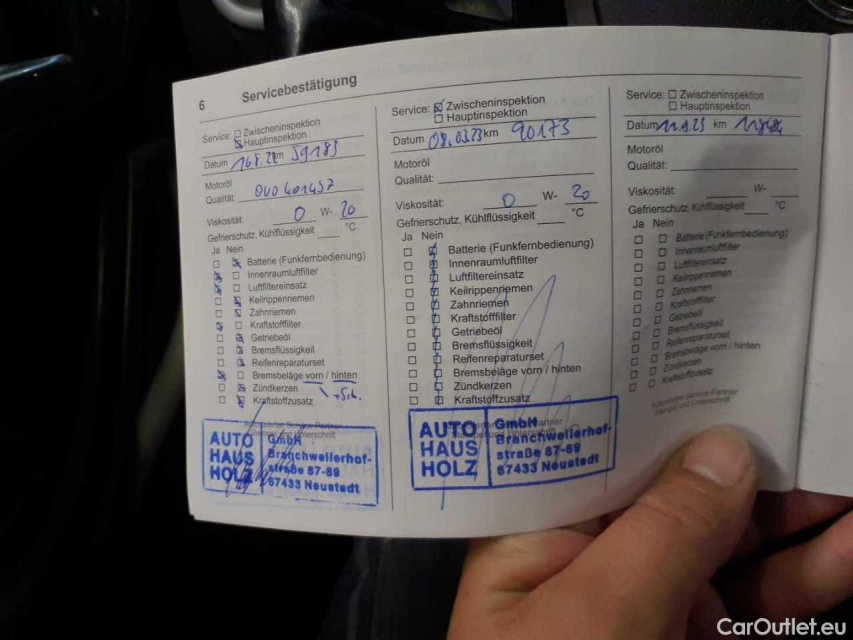 6 Servicebestätigung
Service: ☐ Zwischeninspektion
☒ Hauptinspektion
Datum 16.8.22 km 59183
Motoröl
Qualität: OVO401457
Viskosität: 0 W- 20
Gefrierschutz, Kühlflüssigkeit ___ °C
Ja Nein
☐ ☒ Batterie (Funkfernbedienung)
☒ ☐ Innenraumluftfilter
☒ ☐ Luftfiltereinsatz
☐ ☒ Keilrippenriemen
☐ ☒ Zahnriemen
☒ ☐ Kraftstofffilter
☐ ☒ Getriebeöl
☐ ☒ Bremsflüssigkeit
☐ ☒ Reifenreparaturset
☒ ☐ Bremsbeläge vorn / hinten
☐ ☒ Zündkerzen
☐ ☒ Kraftstoffzusatz
Stempel und Unterschrift
AUTO HAUS HOLZ
GmbH
Branchweilerhof-
straße 87-89
67433 Neustadt
Service: ☒ Zwischeninspektion
☐ Hauptinspektion
Datum 08.03.23 km 90173
Motoröl
Qualität:
Viskosität: 0 W- 20
Gefrierschutz, Kühlflüssigkeit ___ °C
Ja Nein
☐ ☒ Batterie (Funkfernbedienung)
☐ ☒ Innenraumluftfilter
☐ ☒ Luftfiltereinsatz
☐ ☒ Keilrippenriemen
☐ ☒ Zahnriemen
☐ ☒ Kraftstofffilter
☐ ☒ Getriebeöl
☐ ☒ Bremsflüssigkeit
☐ ☒ Reifenreparaturset
☐ ☒ Bremsbeläge vorn / hinten
☐ ☒ Zündkerzen
☐ ☒ Kraftstoffzusatz
AUTO HAUS HOLZ
GmbH
Branchweilerhof-
straße 87-89
67433 Neustadt
Service: ☐ Zwischeninspektion
☐ Hauptinspektion
Datum 11.9.23 km
Motoröl
Qualität:
Viskosität: ___ W- ___
Gefrierschutz, Kühlflüssigkeit ___ °C
Ja Nein
☐ ☐ Batterie (Funkfernbedienung)
☐ ☐ Innenraumluftfilter
☐ ☐ Luftfiltereinsatz
☐ ☐ Keilrippenriemen
☐ ☐ Zahnriemen
☐ ☐ Kraftstofffilter
☐ ☐ Getriebeöl
☐ ☐ Bremsflüssigkeit
☐ ☐ Reifenreparaturset
☐ ☐ Bremsbeläge vorn / hinten
☐ ☐ Zündkerzen
☐ ☐ Kraftstoffzusatz
Autorisierter Service Partner
Stempel und Unterschrift
CarOutlet.eu